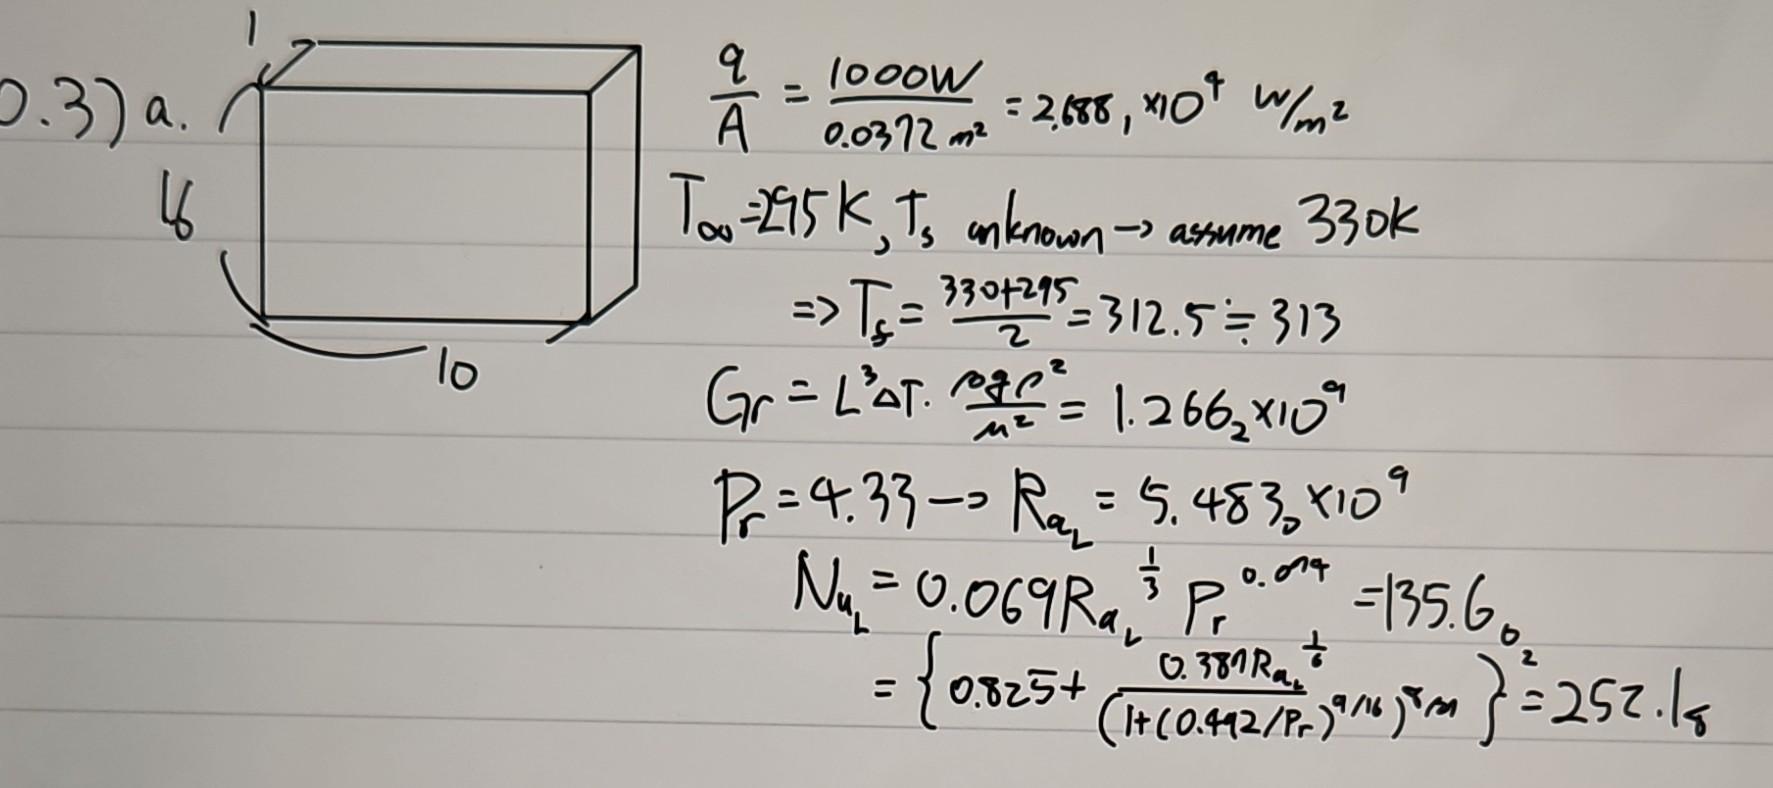 0.3) a.
1
16
10
q/A = 1000W/0.0372 m² = 2.688₁ ×10⁴ W/m²
T∞ = 295K, Ts unknown → assume 330K
=> Tf = (330+295)/2 = 312.5 ≒ 313
Gr = L³ΔT · βgρ²/μ² = 1.266₂×10⁹
Pr = 4.33 → Ra_L = 5.483₀×10⁹
Nu_L = 0.069 Ra_L^(1/3) Pr^0.074 = 135.6₀
= {0.825 + 0.387Ra_L^(1/6)/(1+(0.492/Pr)^(9/16))^(8/27)}² = 252.1₈